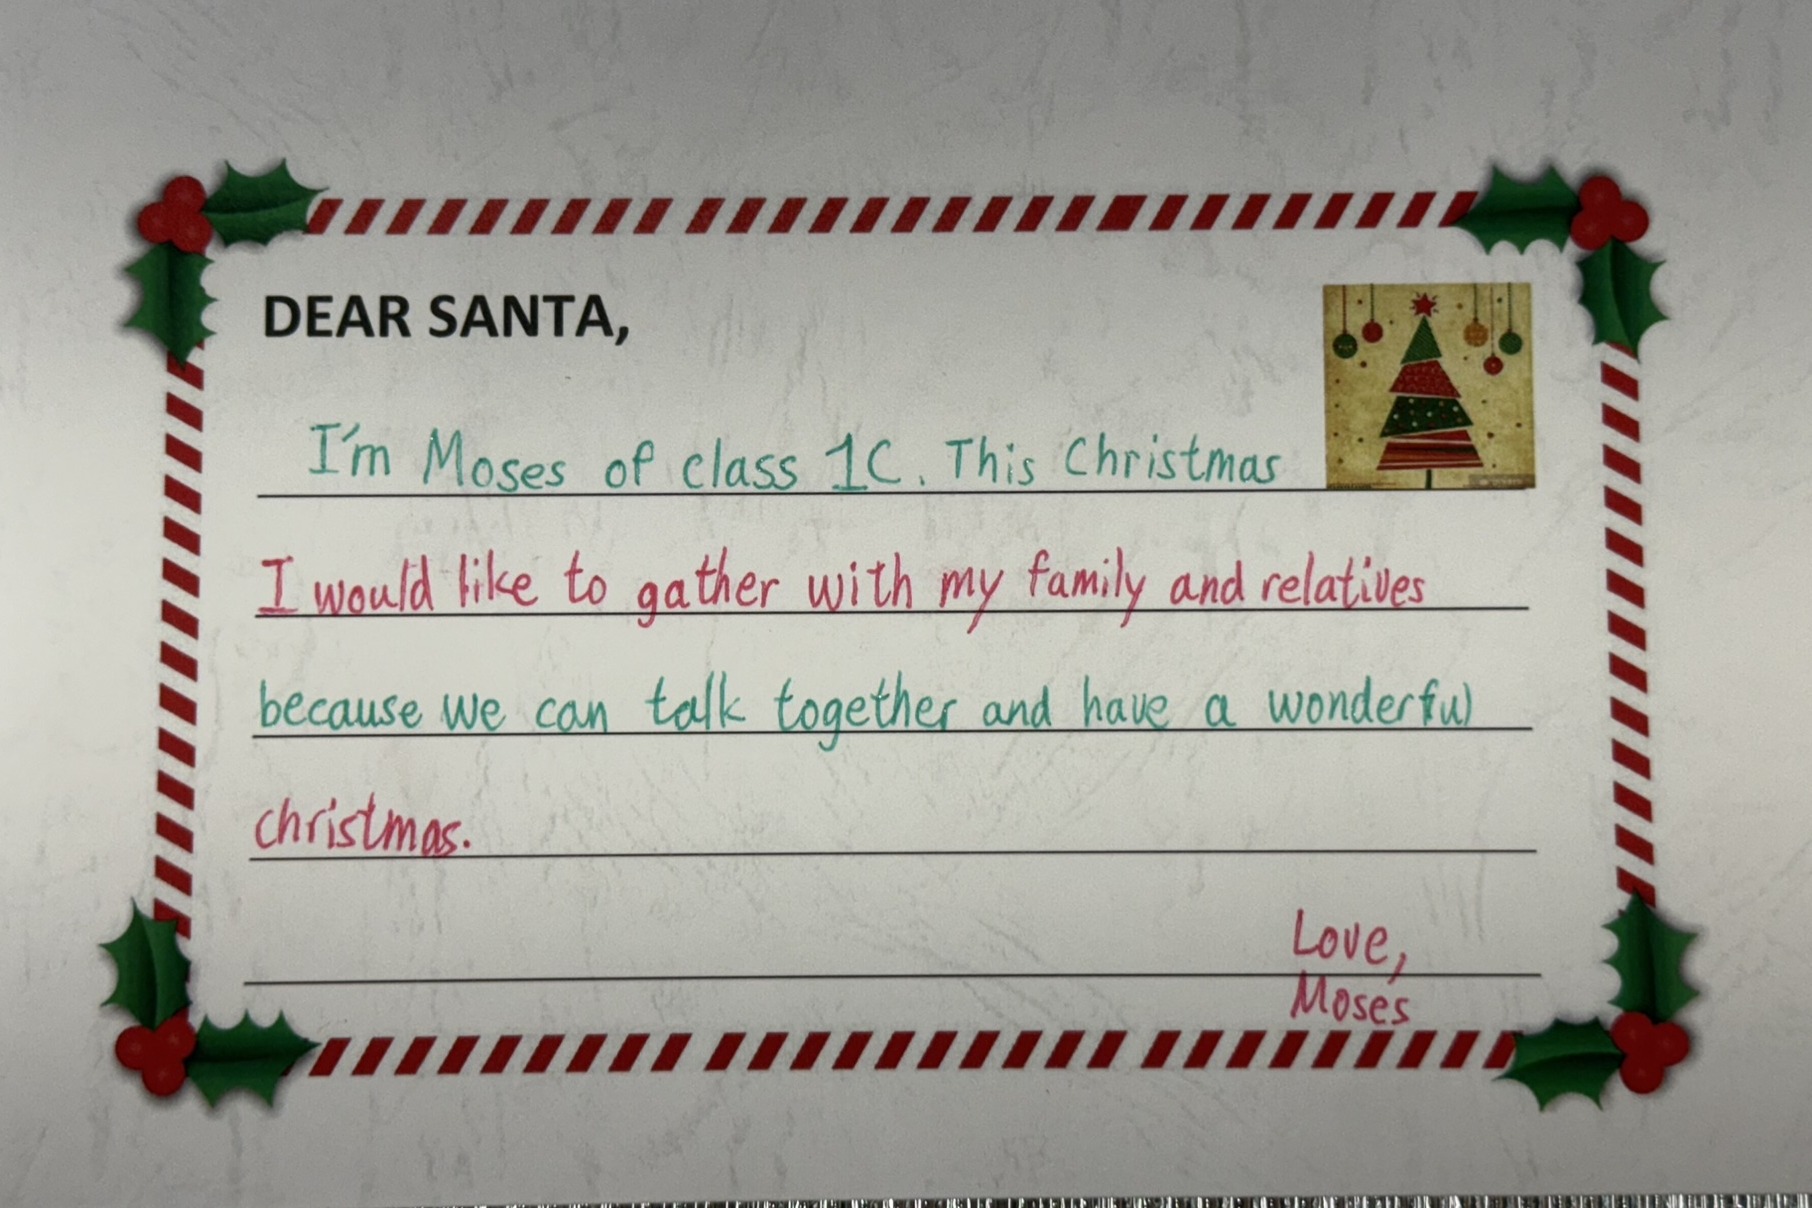 DEAR SANTA,
I'm Moses of class 1C. This Christmas
I would like to gather with my family and relatives
because we can talk together and have a wonderful
christmas.
Love,
Moses